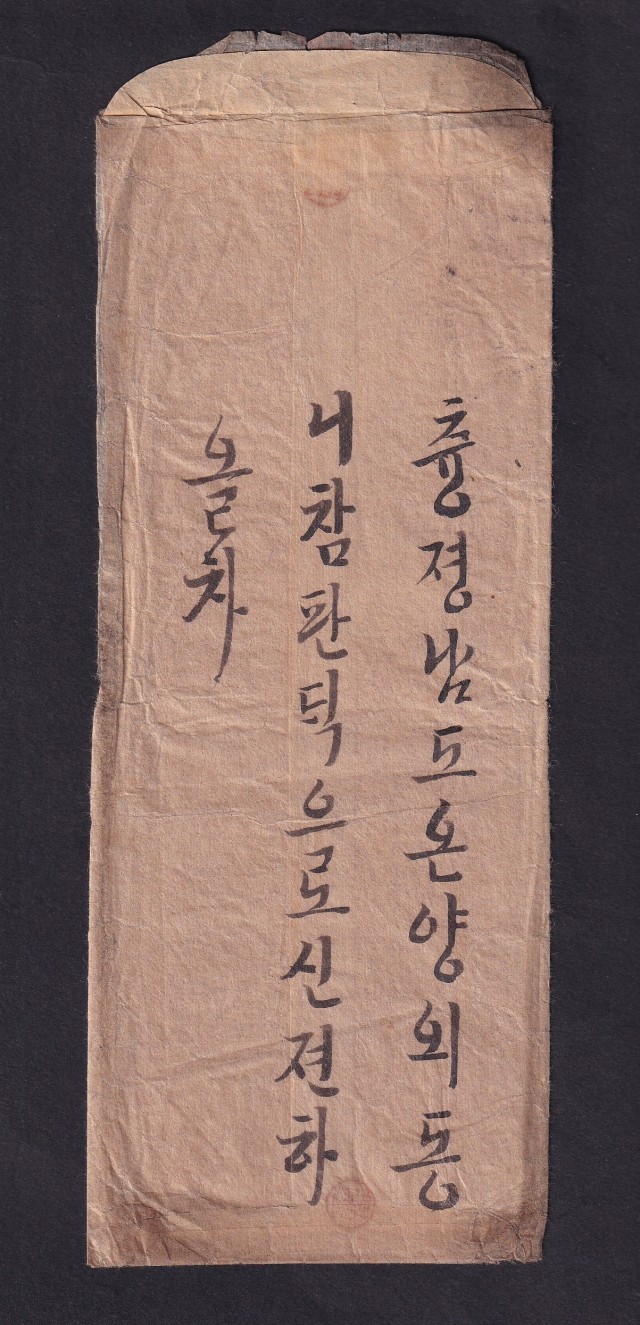 츙졍남도온양외동
니참판딕으로신젼하
올차